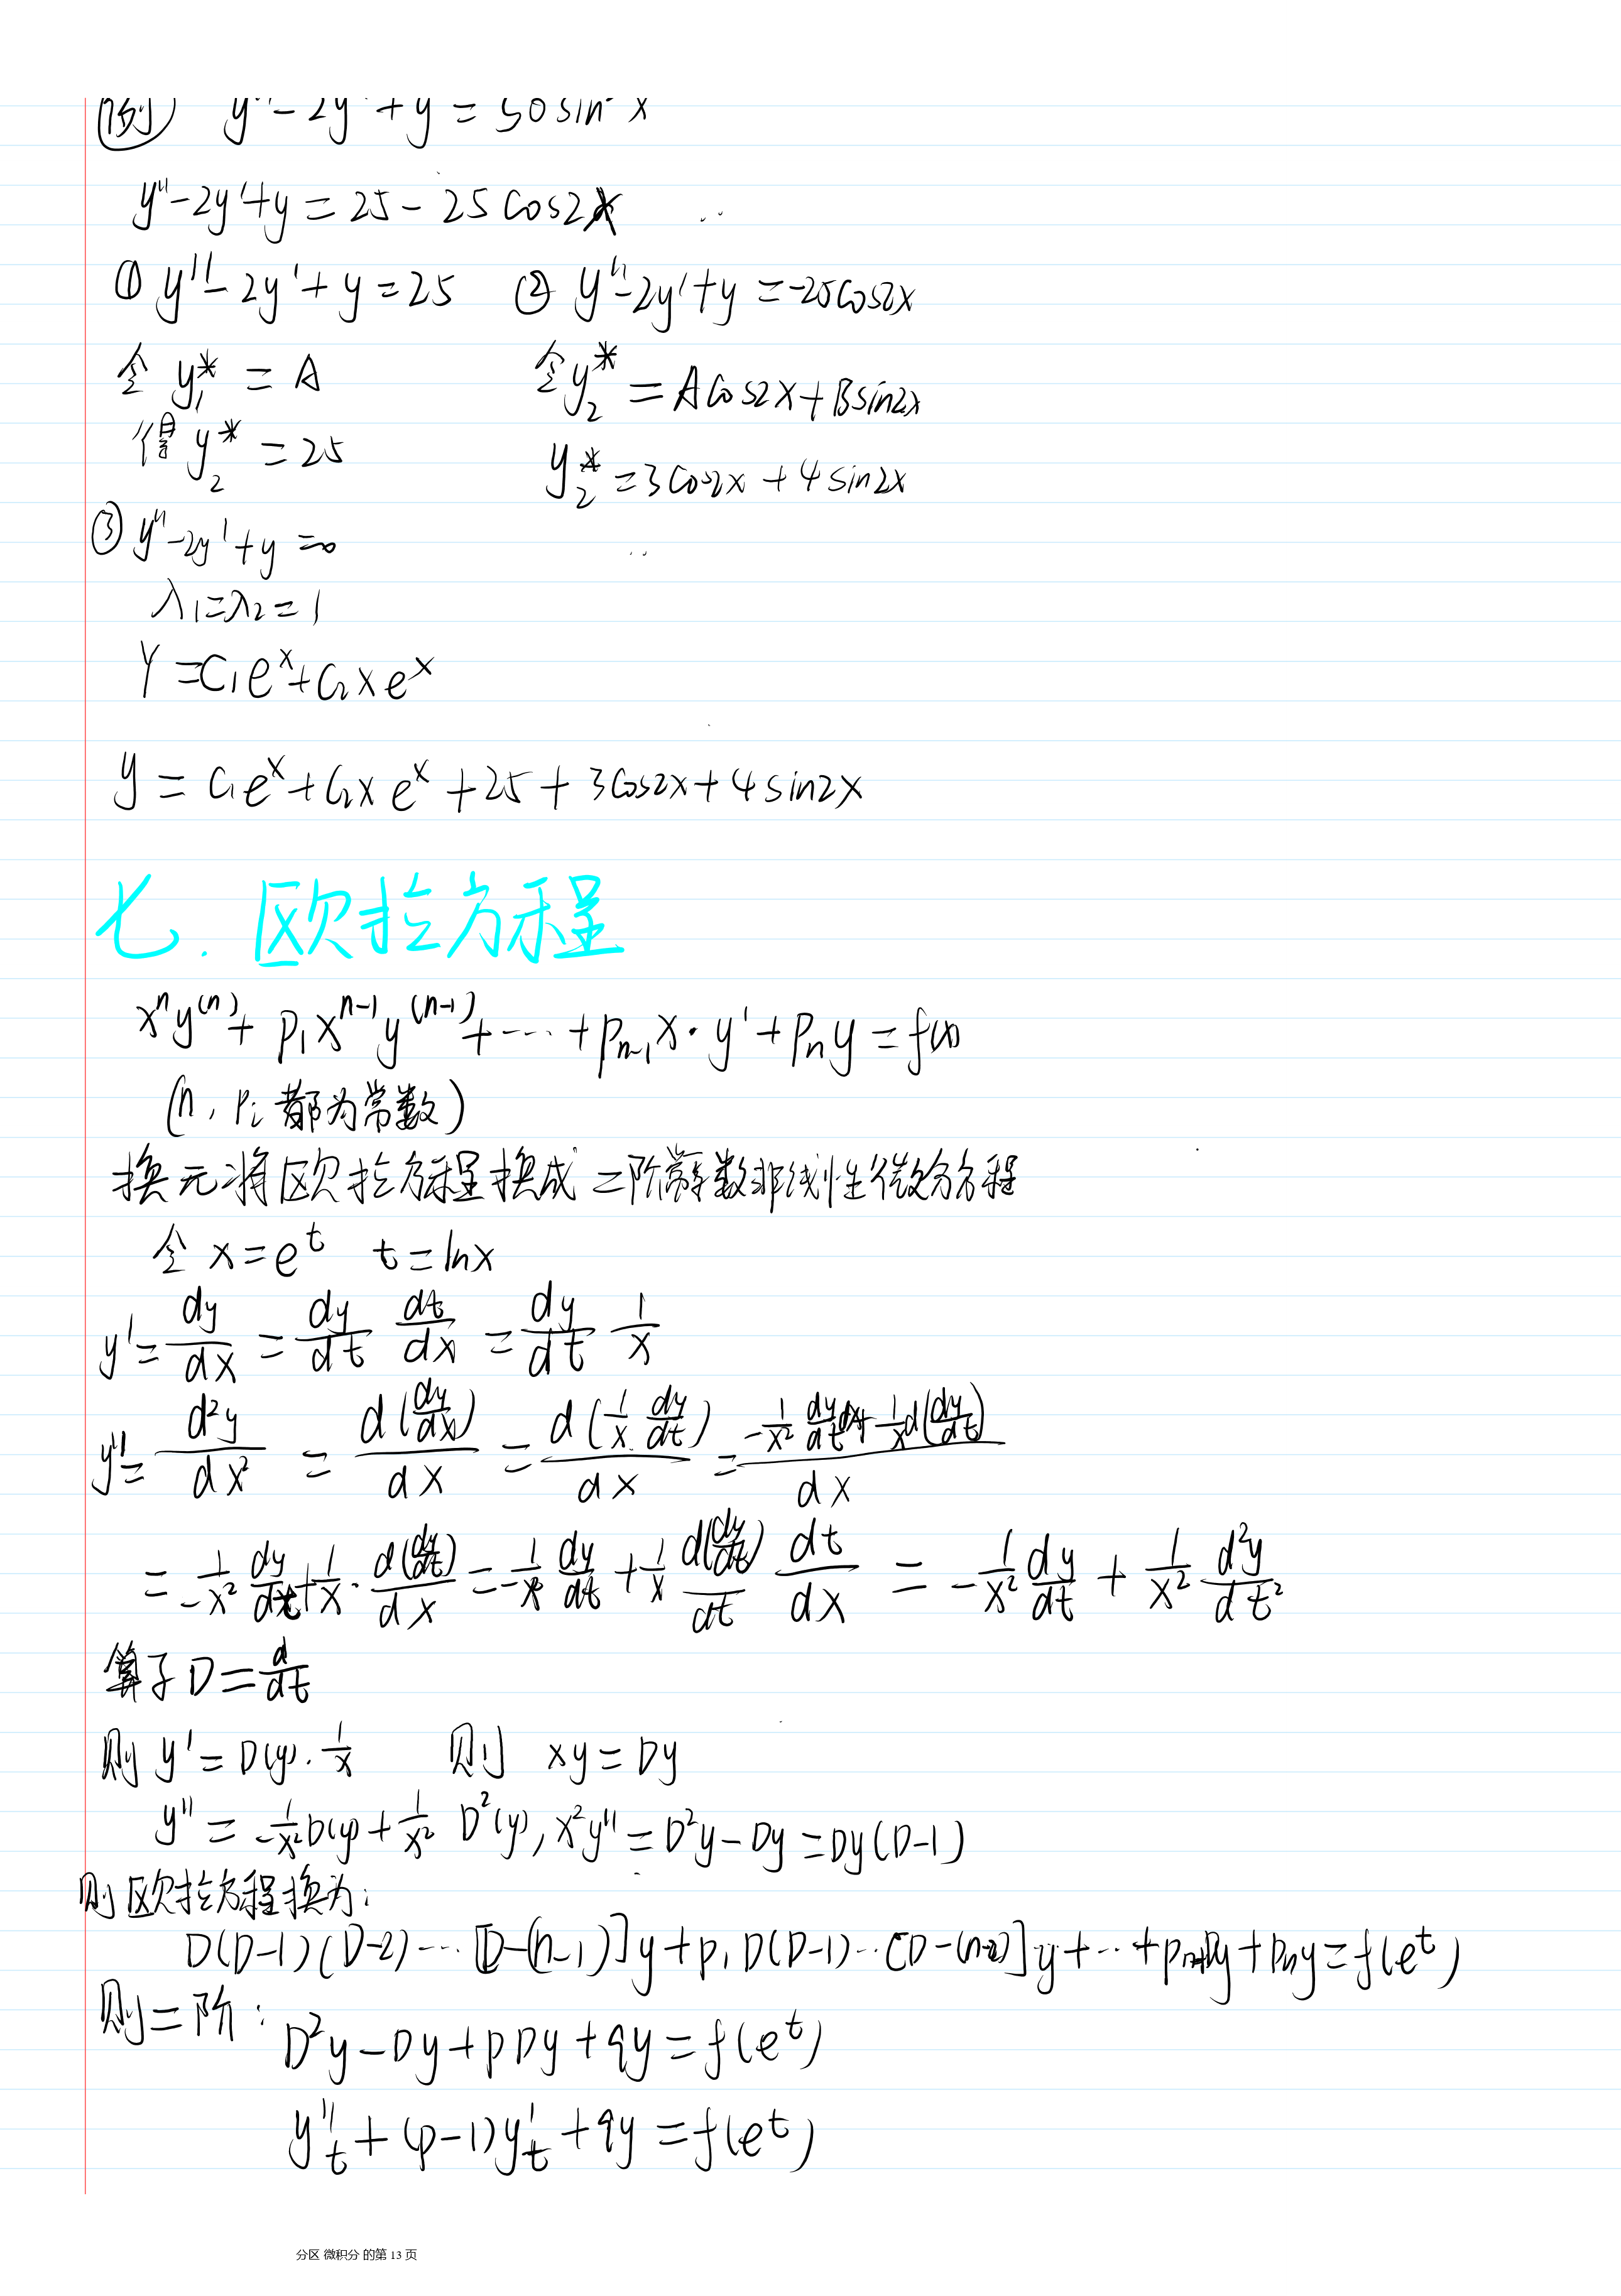 例 y''-2y'+y=50sin²x
y''-2y'+y=25-25cos2x
① y''-2y'+y=25 ② y''-2y'+y=-25cos2x
令 y₁*=A 令 y₂*=Acos2x+Bsin2x
得 y₂*=25 y₂*=3cos2x+4sin2x
③ y''-2y'+y=0
λ₁=λ₂=1
Y=C₁eˣ+C₂xeˣ
y=C₁eˣ+C₂xeˣ+25+3cos2x+4sin2x
七.欧拉方程
xⁿy⁽ⁿ⁾+p₁xⁿ⁻¹y⁽ⁿ⁻¹⁾+…+pₙ₋₁x·y'+pₙy=f(x)
(n, pᵢ 都为常数)
换元将欧拉方程换成二阶常系数非线性微分方程
令 x=eᵗ t=lnx
y'=dy/dx=dy/dt dt/dx=dy/dt 1/x
y''=d²y/dx²=d(dy/dx)/dx=d(1/x dy/dt)/dx=(-1/x² dy/dt dx+1/x d(dy/dt))/dx
=-1/x² dy/dt+1/x·d(dy/dt)/dx=-1/x² dy/dt+1/x d(dy/dt)/dt dt/dx=-1/x² dy/dt+1/x² d²y/dt²
算子D=d/dt
则 y'=D(y)·1/x 则 xy=Dy
y''=-1/x²D(y)+1/x² D²(y), x²y''=D²y-Dy=Dy(D-1)
则欧拉方程换为:
D(D-1)(D-2)…[D-(n-1)]y+p₁D(D-1)…[D-(n-2)]y+…+pₙ₋₁Dy+pₙy=f(eᵗ)
则二阶:
D²y-Dy+pDy+qy=f(eᵗ)
y''ₜ+(p-1)y'ₜ+qy=f(eᵗ)
分区 微积分 的第 13 页